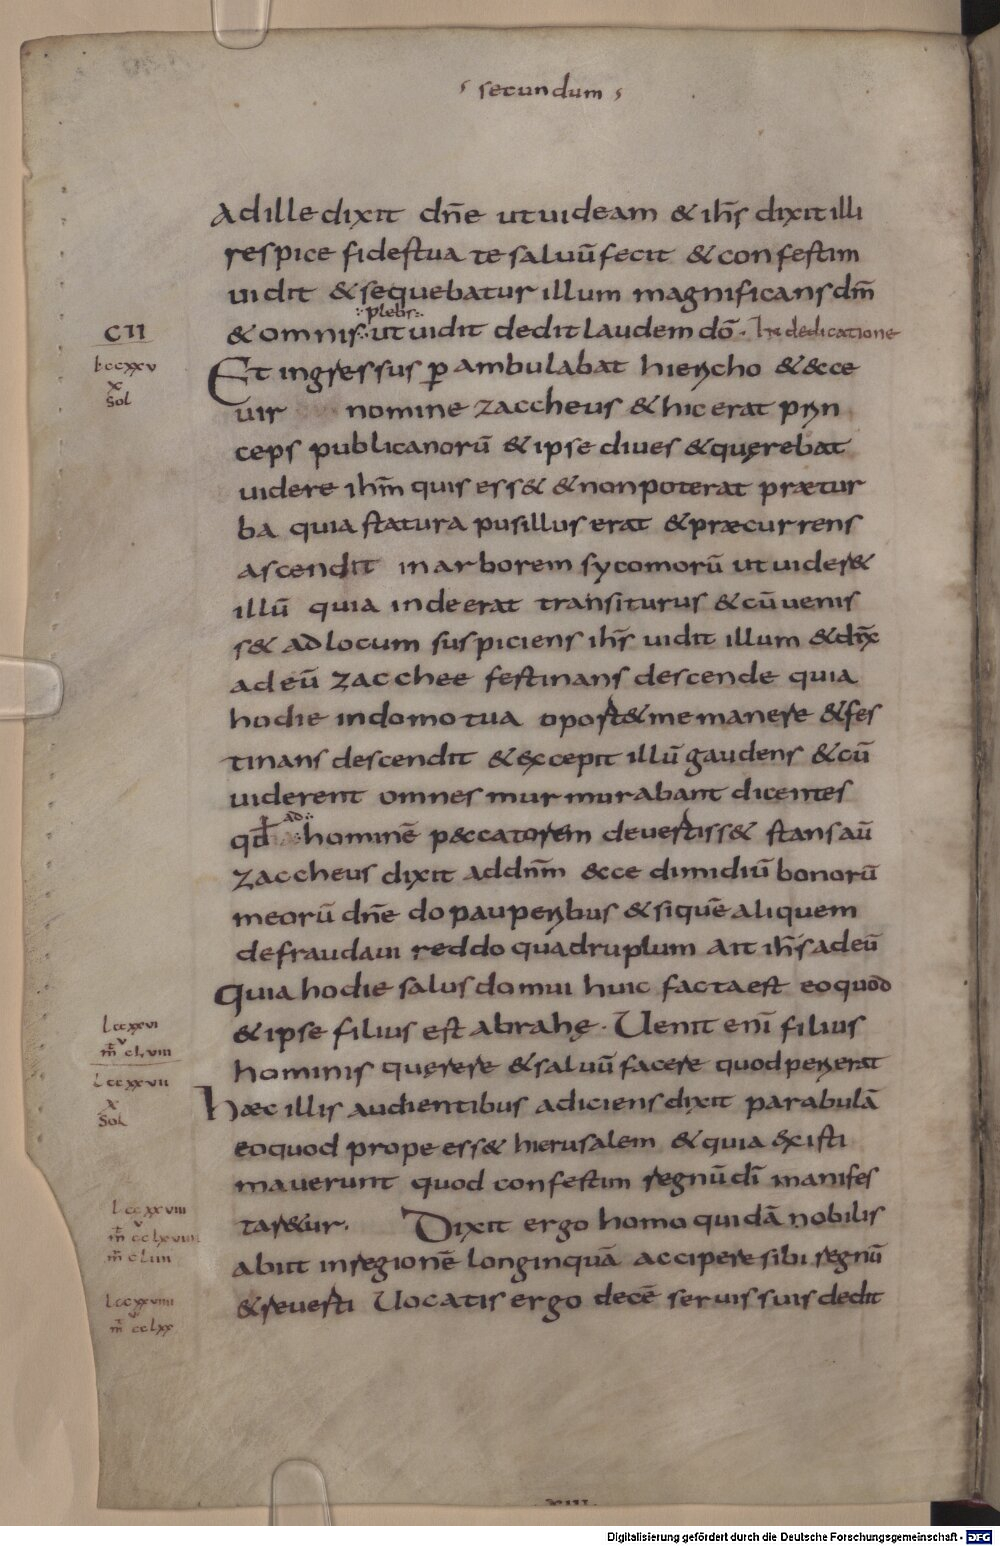 secundum
Adille dixit dn̄e ut uideam & ih̄s dixit illi
respice fides tua te saluū fecit & confestim
uidit & sequebatur illum magnificans dm̄
plebs
& omnis ut uidit dedit laudem dō. In dedicatione
CII
Et ingressus ꝑambulabat hiericho & &ce
lccxxv
x
sol
uir nomine zaccheus & hic erat prin
ceps publicanorū & ipse diues & querebat
uidere ihm̄ quis ess& & non poterat præ tur
ba quia statura pusillus erat & præcurrens
ascendit in arborem sycomorū ut uider&
illū quia inde erat transiturus & cū uenis
s& ad locum suspiciens ih̄s uidit illum & dix̄
ad eū zacchee festinans descende quia
hodie in domo tua oport& me manere & fes
tinans descendit & excepit illū gaudens & cū
uiderent omnes murmurabant dicentes
ad
qd̄ hominē peccatorem deuertiss& stans aū
zaccheus dixit ad dnm̄ &ce dimidiū bonorū
meorū dn̄e do pauperibus & siquē aliquem
defraudaui reddo quadruplum Ait ih̄s ad eū
Quia hodie salus domui huic facta est eo quod
lccxxvi
v
m̄ clviii
& ipse filius est abrahę. Uenit enī filius
hominis quęrere & saluū facere quod perierat
lccxxvii
x
sol
hæc illis audientibus adiciens dixit parabulā
eo quod prope ess& hierusalem & quia existi
mauerunt quod confestim regnū dī manifes
lccxxviii
v
m̄ cclxviiii
m̄ cliiii
tar&ur. Dixit ergo homo quidā nobilis
abiit in regionē longinquā accipere sibi regnū
lccxxviiii
m̄ cclxx
& reuerti Uocatis ergo decē seruis suis dedit
XIII
Digitalisierung gefördert durch die Deutsche Forschungsgemeinschaft - DFG